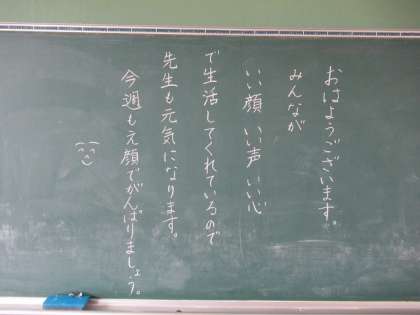 おはようございます。
みんなが
いい顔 いい声 いい心
で生活してくれているので
先生も元気になります。
今週もえ顔でがんばりましょう。